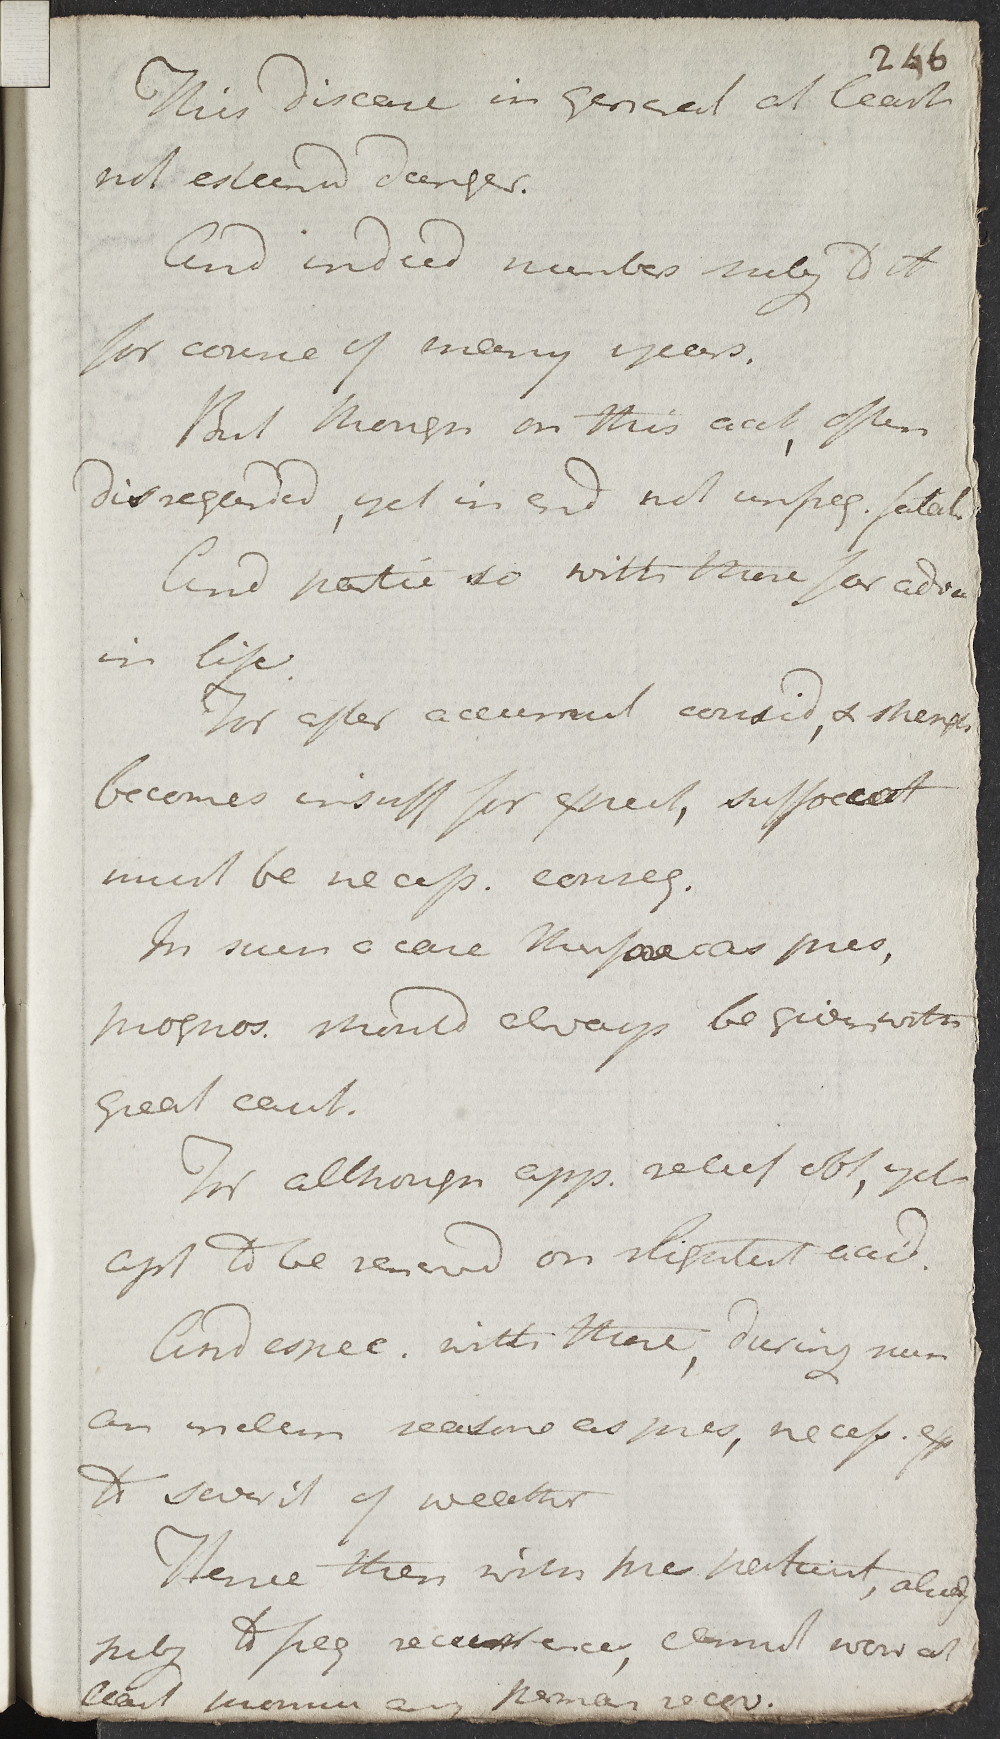 246
This disease in general at least
not esteemd danger.
And indeed numbers subj to it
for course of many years.
But though on this acct, often
disregarded, yet in end not unfreq. fatal
And partic so with those far adva
in life.
For after accumul consid, & strength
becomes insuff for expect, suffocat
must be necess. conseq.
In such a case therefore as pres,
prognos. should always be given with
great caut.
For although app. relief obt, yet
apt to be renewd on slightest accid.
And espec. with those, during such
an inclem season as pres, necess. exp
to severit of weather
Hence then with pres patient, alredy
subj to freq recurrence, cannot now at
least promise any perman recov.